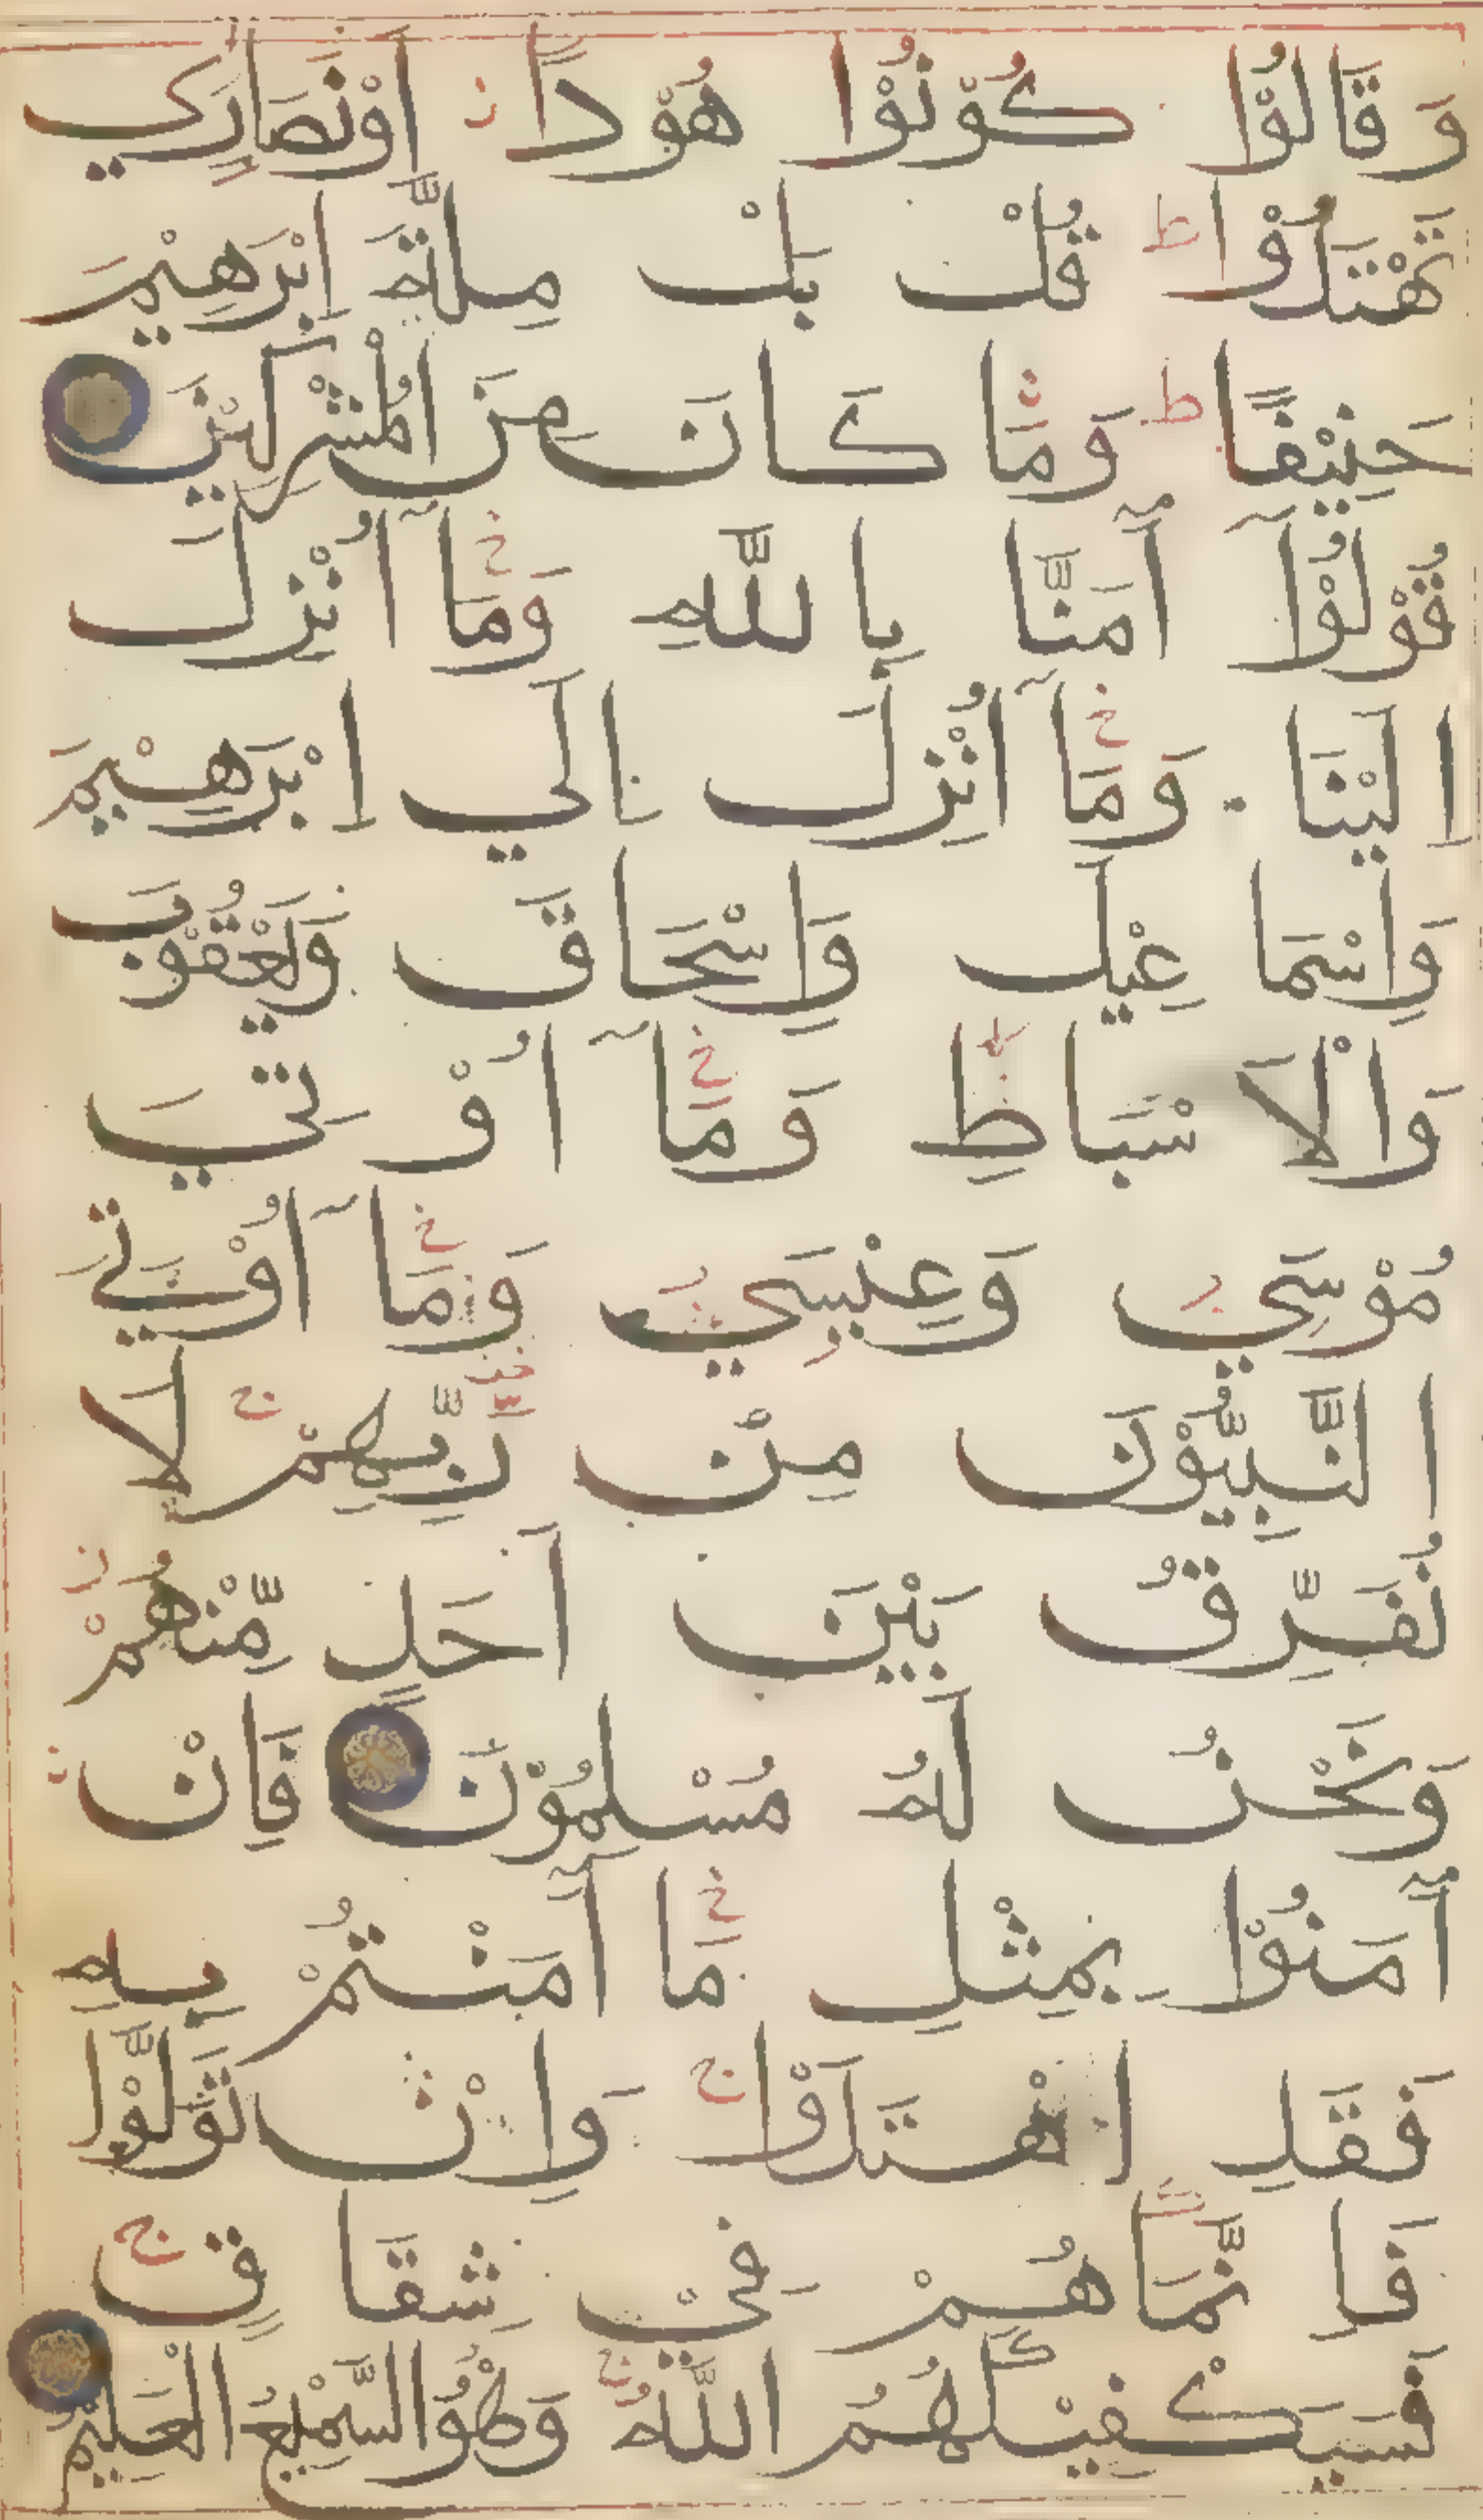 وَقَالُوْا كُوْنُوْا هُوْدًا اَوْنَصَارٰي
تَهْتَدُوْا ط قُلْ بَلْ مِلَّةَ اِبْرَهِيْمَ
حَنِيْفًا ط وَمَا كَانَ مِنَ الْمُشْرِكِيْنَ
قُوْلُوْآ اٰمَنَّا بِاللّٰهِ وَمَآ اُنْزِلَ
اِلَيْنَا وَمَآ اُنْزِلَ اِلَي اِبْرَهِيْمَ
وَاِسْمَاعِيْلَ وَاِسْحَاقَ وَيَعْقُوْبَ
وَالْاَسْبَاطِ وَمَآ اُوْتِيَ
مُوْسَي وَعِيْسَي وَمَآ اُوْتِيَ
النَّبِيُّوْنَ مِنْ رَّبِّهِمْ ج لَا
نُفَرِّقُ بَيْنَ اَحَدٍ مِّنْهُمْ
وَنَحْنُ لَهُ مُسْلِمُوْنَ فَاِنْ
اٰمَنُوْا بِمِثْلِ مَا اٰمَنْتُمْ بِهِ
فَقَدِ اهْتَدَوْا ج وَاِنْ تَوَلَّوْا
فَاِنَّمَا هُمْ فِيْ شِقَاقٍ ج
فَسَيَكْفِيْكَهُمُ اللّٰهُ ج وَهُوَ السَّمِيْعُ الْعَلِيْمُ